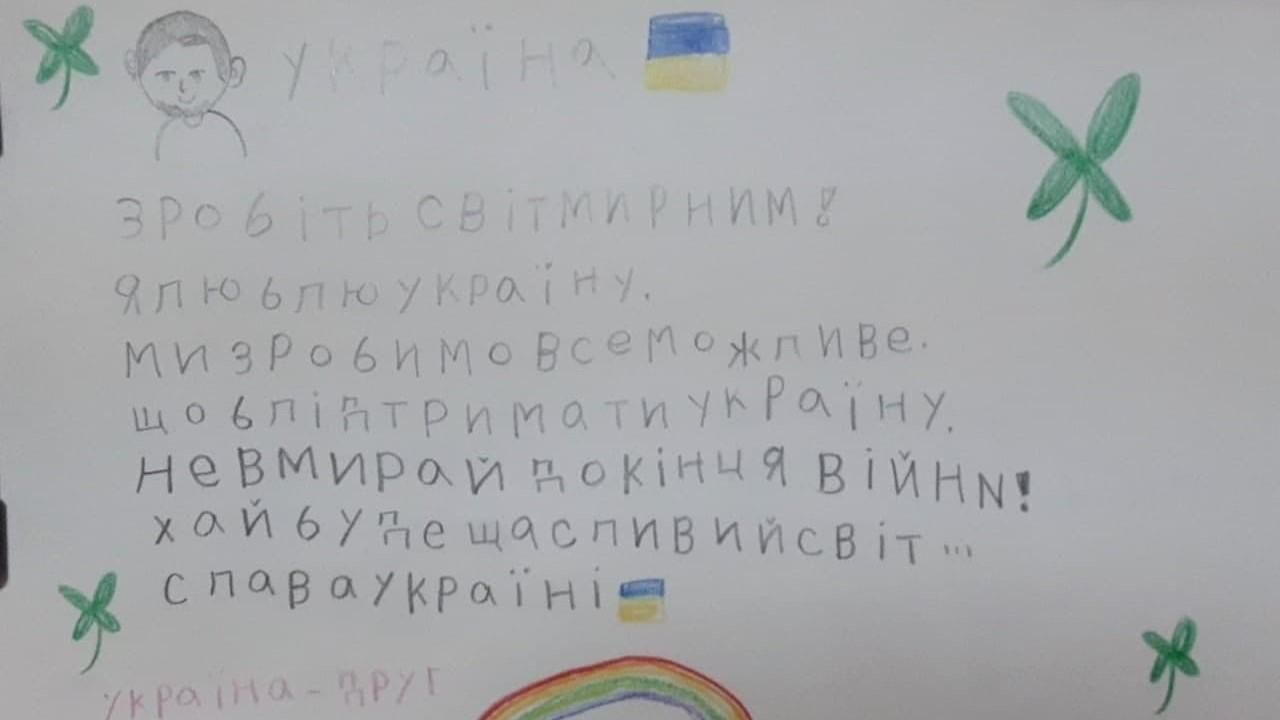 україна
зробіть світмирним!
ялюблюукраїну.
мизробимовсеможливе.
щобпідтриматиукраїну.
невмирай докінця війни!
хайбуде щасливийсвіт...
славаукраїні
україна-друг